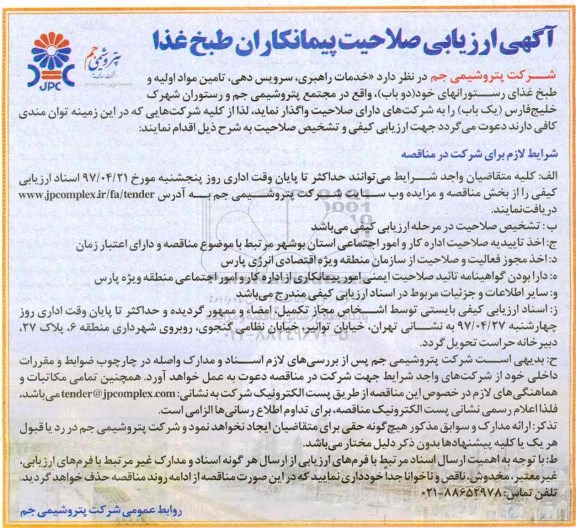 آگهی ارزیابی صلاحیت پیمانکاران طبخ غذا
پتروشیمی جم
JPC
شرکت پتروشیمی جم در نظر دارد «خدمات راهبری، سرویس دهی، تامین مواد اولیه و
طبخ غذای رستورانهای خود(دو باب)، واقع در مجتمع پتروشیمی جم و رستوران شهرک
خلیج‌فارس (یک باب) را به شرکت‌های دارای صلاحیت واگذار نماید، لذا از کلیه شرکت‌هایی که در این زمینه توان مندی
کافی دارند دعوت می‌گردد جهت ارزیابی کیفی و تشخیص صلاحیت به شرح ذیل اقدام نمایند:
شرایط لازم برای شرکت در مناقصه
الف: کلیه متقاضیان واجد شرایط می‌توانند حداکثر تا پایان وقت اداری روز پنجشنبه مورخ ۹۷/۰۴/۲۱ اسناد ارزیابی
کیفی را از بخش مناقصه و مزایده وب سایت شرکت پتروشیمی جم به آدرس www.jpcomplex.ir/fa/tender
دریافت‌نمایند.
ب: تشخیص صلاحیت در مرحله ارزیابی کیفی می‌باشد
ج: اخذ تاییدیه صلاحیت اداره کار و امور اجتماعی استان بوشهر مرتبط با موضوع مناقصه و دارای اعتبار زمان
د: اخذ مجوز فعالیت و صلاحیت از سازمان منطقه ویژه اقتصادی انرژی پارس
ه: دارا بودن گواهینامه تائید صلاحیت ایمنی امور پیمانکاری از اداره کار و امور اجتماعی منطقه ویژه پارس
و: سایر اطلاعات و جزئیات مربوط در اسناد ارزیابی کیفی مندرج می‌باشد
ز: اسناد ارزیابی کیفی بایستی توسط اشخاص مجاز تکمیل، امضاء و ممهور گردیده و حداکثر تا پایان وقت اداری روز
چهارشنبه ۹۷/۰۴/۲۷ به نشانی تهران، خیابان توانیر، خیابان نظامی گنجوی، روبروی شهرداری منطقه ۶، پلاک ۲۷،
دبیرخانه حراست تحویل گردد.
ح: بدیهی است شرکت پتروشیمی جم پس از بررسی‌های لازم اسناد و مدارک واصله در چارچوب ضوابط و مقررات
داخلی خود از شرکت‌های واجد شرایط جهت شرکت در مناقصه دعوت به عمل خواهد آورد. همچنین تمامی مکاتبات و
هماهنگی‌های لازم در خصوص این مناقصه از طریق پست الکترونیک شرکت به نشانی: tender@jpcomplex.com می‌باشد،
فلذا اعلام رسمی نشانی پست الکترونیک مناقصه، برای تداوم اطلاع رسانی‌ها الزامی است.
تذکر: ارائه مدارک و سوابق مذکور هیچ‌گونه حقی برای متقاضیان ایجاد نخواهد نمود و شرکت پتروشیمی جم در رد یا قبول
هر یک یا کلیه پیشنهادها بدون ذکر دلیل مختار می‌باشد.
ط: با توجه به اهمیت ارسال اسناد مرتبط با فرم‌های ارزیابی از ارسال هر گونه اسناد و مدارک غیر مرتبط با فرم‌های ارزیابی،
غیر معتبر، مخدوش، ناقص و ناخوانا جدا خودداری نمایید که در این صورت مناقصه از ادامه روند مناقصه حذف خواهد گردید.
تلفن تماس: ۸۸۶۵۲۹۷۸-۰۲۱
روابط عمومی شرکت پتروشیمی جم